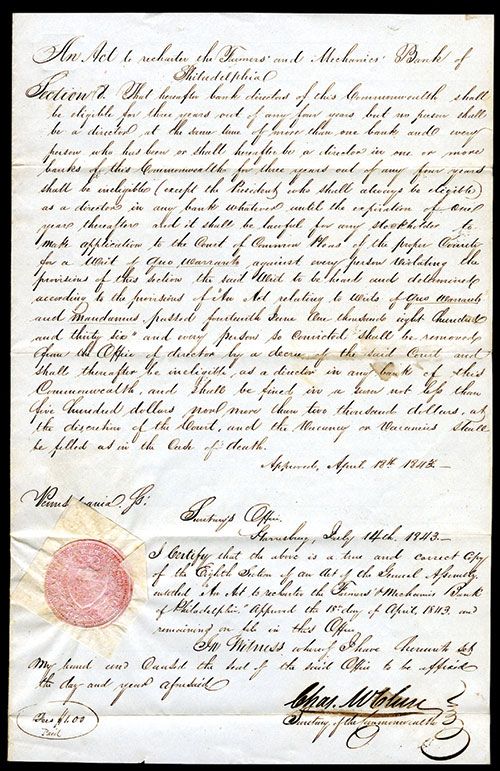 An Act to recharter the Farmers' and Mechanics' Bank of
Philadelphia
Section 8. That hereafter bank directors of this Commonwealth shall
be eligible for three years out of any four years, but no person shall
be a director at the same time of more than one bank and every
person who has been or shall hereafter be a director in one or more
banks of this Commonwealth for three years out of any four years
shall be ineligible (except the President who shall always be eligible)
as a director in any bank whatever until the expiration of one
year thereafter and it shall be lawful for any stockholder to
make application to the Court of Common Pleas of the proper County
for a Writ of Quo Warranto against every person violating the
provisions of this Section the said Writ to be heard and determined
according to the provisions of An Act relating to Writs of Quo Warranto
and Mandamus, passed fourteenth June One thousand eight hundred
and thirty six" and every person so convicted shall be removed
from the Office of director by a decree of the said Court and
shall thereafter be ineligible, as a director in any bank of this
Commonwealth, and shall be fined in a sum not less than
five hundred dollars nor more than two thousand dollars, at
the discretion of the Court, and the Vacancy or Vacancies shall
be filled as in the Case of death.
Approved, April 18th 1843.
Pennsylvania Ss:
Secretary's Office.
Harrisburg, July 14th. 1843.
I Certify that the above is a true and correct Copy
of the Eighth Section of an Act of the General Assembly
entitled "An Act to recharter the Farmers' & Mechanics' Bank
of Philadelphia" Approved the 18th day of April 1843 and
remaining on file in this Office
In Witness whereof I have hereunto set
My hand and Caused the seal of the said Office to be affixed
the day and year aforesaid
Chas. McClure
Secretary of the Commonwealth
Fees $1.00
Paid